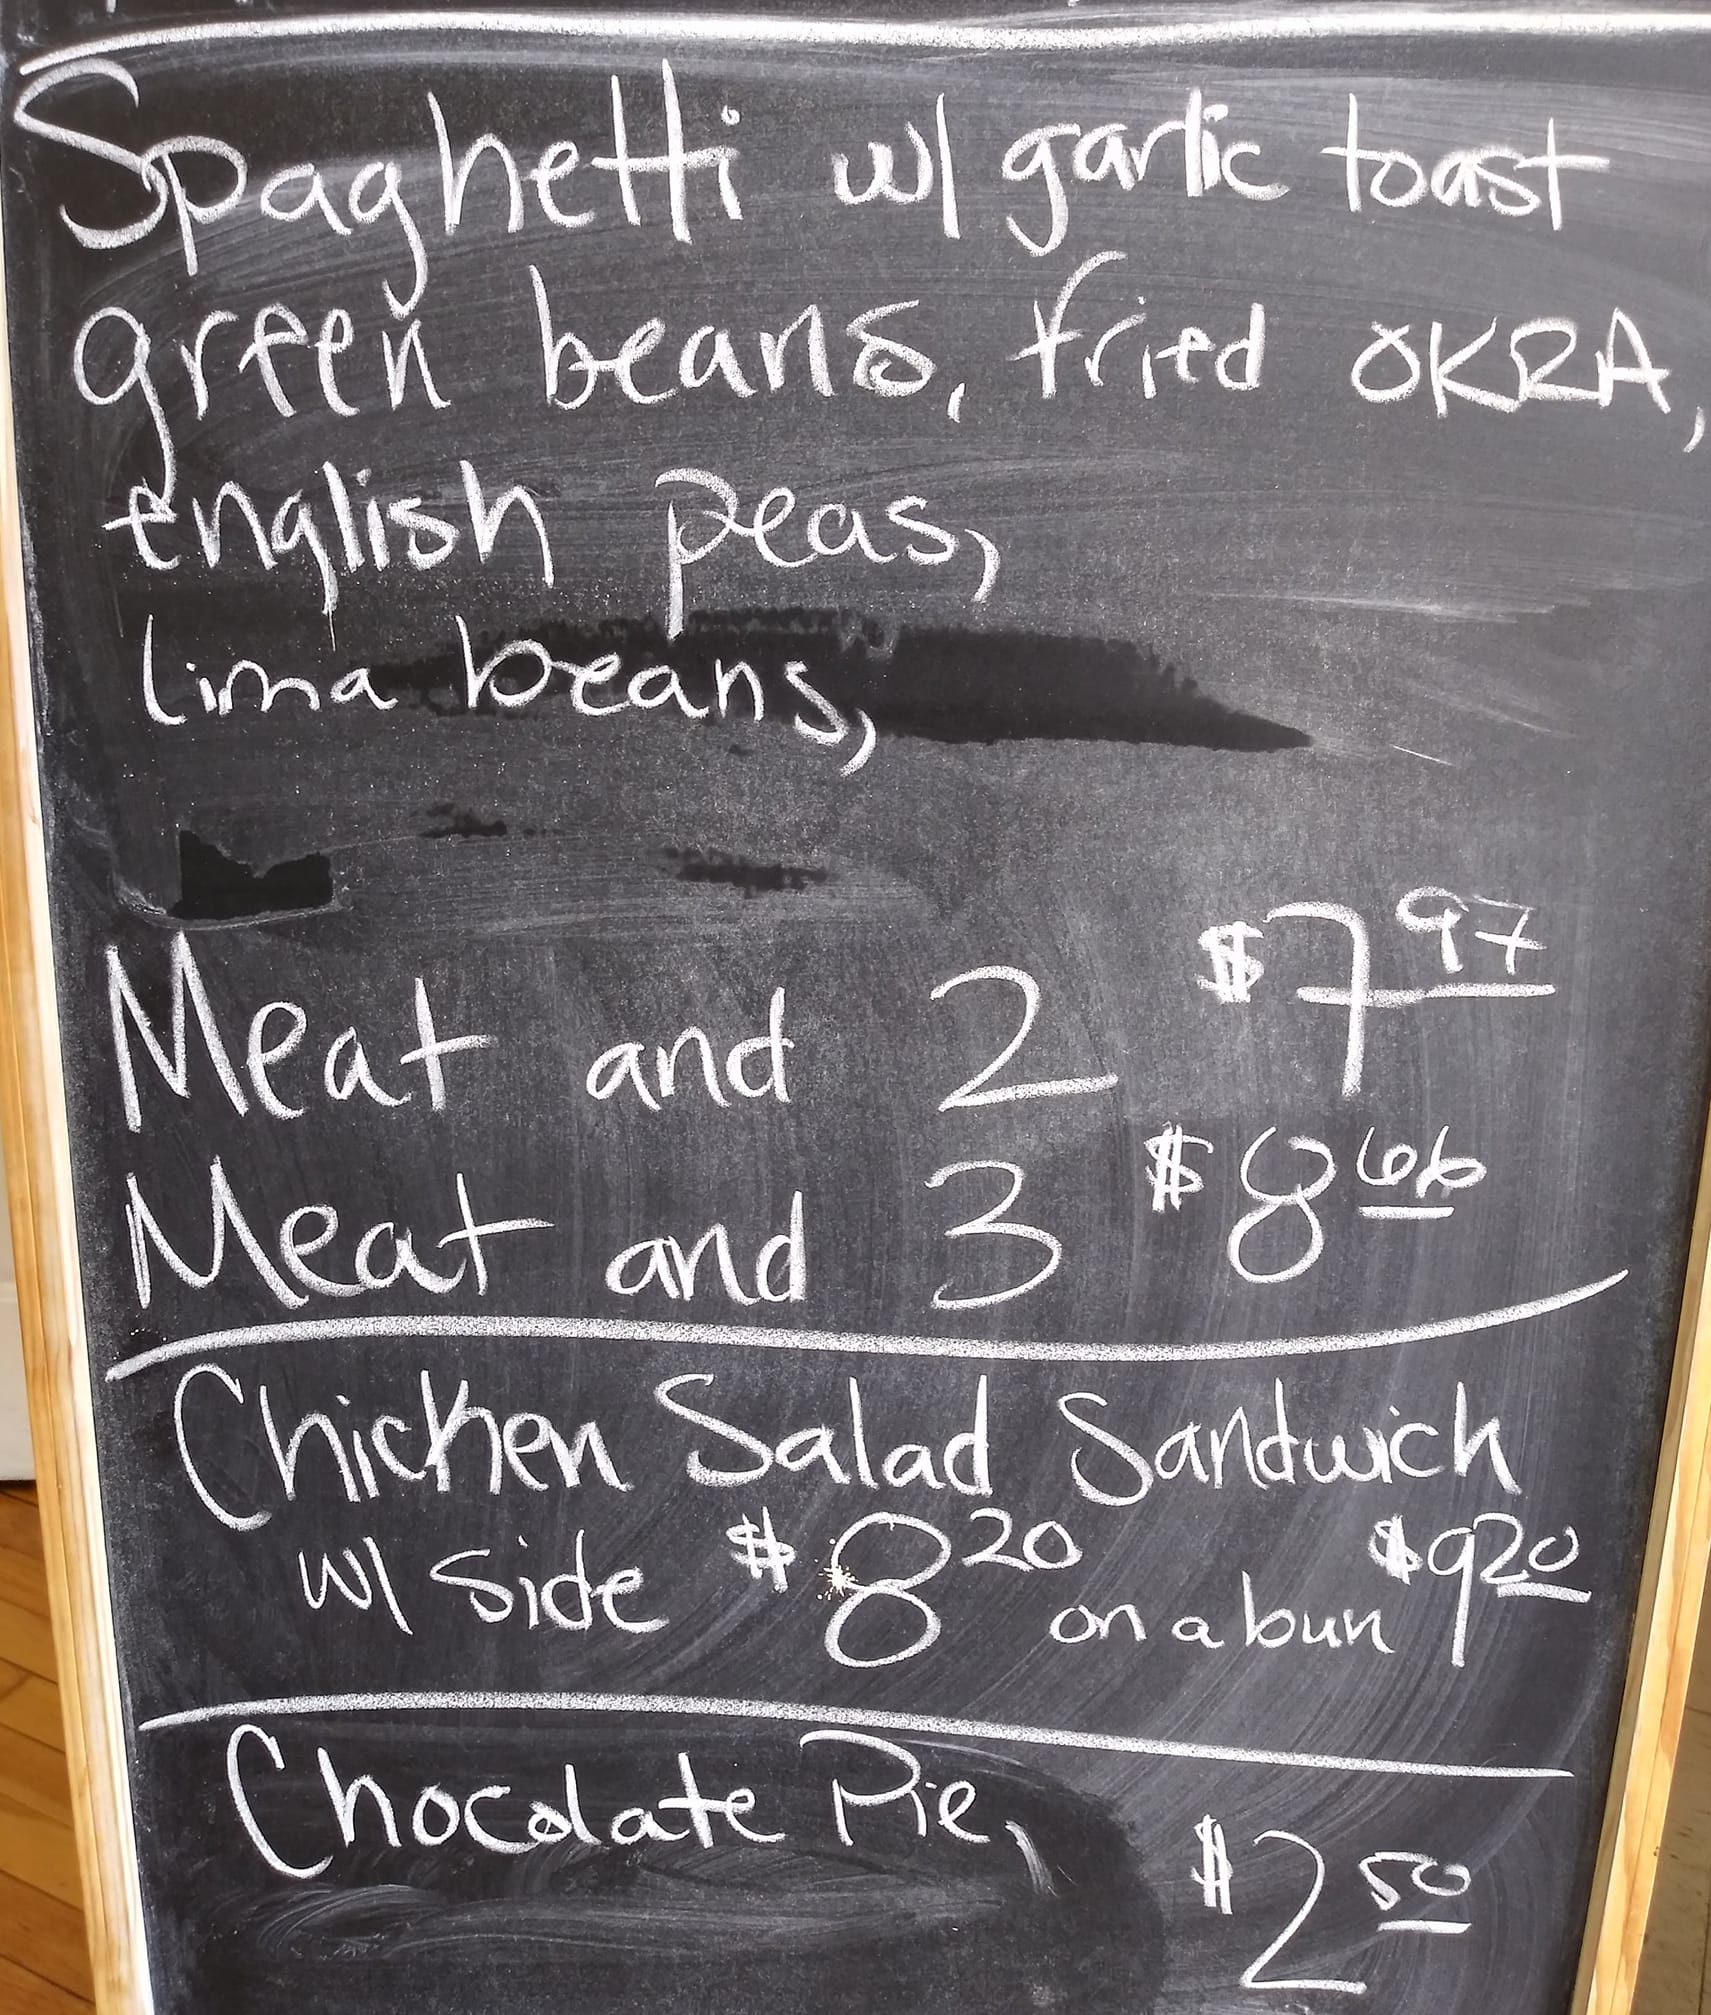 Spaghetti w/ garlic toast
green beans, fried OKRA,
english peas,
lima beans,
Meat and 2 $7 97
Meat and 3 $8 66
Chicken Salad Sandwich
w/ side $8 20 on a bun $9 20
Chocolate Pie,
$2 50